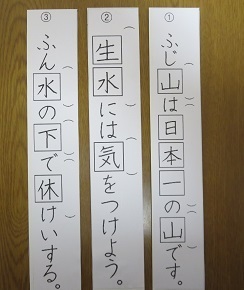 ① ふじ山は日本一の山です。
② 生水には気をつけよう。
③ ふん水の下で休けいする。